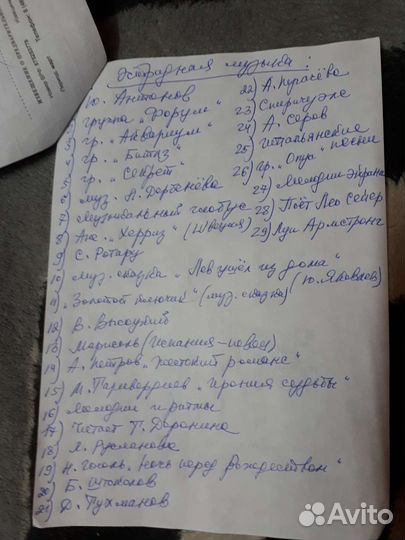 Эстрадная музыка:
1) Ю. Антонов
2) группа "Форум"
3) гр. "Аквариум"
4) гр. "Битлз"
5) гр. "Секрет"
6) муз. Л. Дербенёва
7) Музыкальный глобус
8) Анс. "Херриз" (Швеция)
9) С. Ротару
10) муз. сказка "Лев ушёл из дома" (Ю. Яковлев)
11) "Золотой ключик" (муз. сказка)
12) В. Высоцкий
13) Марисоль (Испания - певец)
14) А. Петров "Жестокий романс"
15) М. Таривердиев "Ирония судьбы"
16) Мелодии и ритмы
17) Читает Т. Доронина
18) Л. Русланова
19) Н. Гоголь. "Ночь перед Рождеством"
20) Б. Штоколов
21) Д. Тухманов
22) А. Пугачёва
23) Спиричуэлс
24) А. Серов
25) Итальянские песни
26) гр. "Опус"
27) Мелодии экрана
28) Поёт Лео Сейер
29) Луи Армстронг
Avito